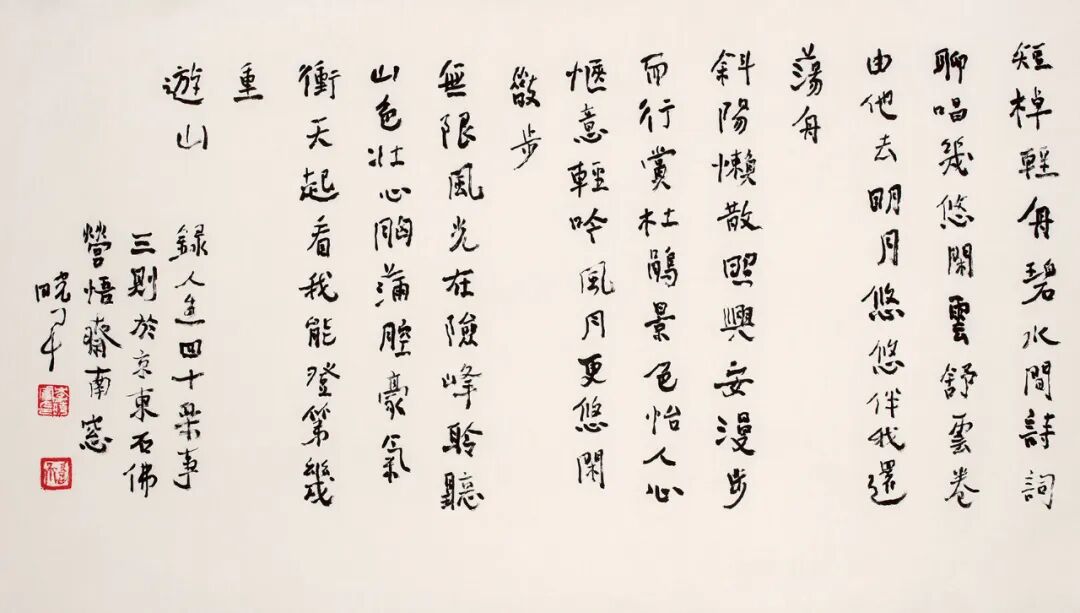 短棹輕舟碧水間詩詞
聊唱幾悠閑雲舒雲卷
由他去明月悠悠伴我還
蕩舟
斜陽懶散照興安漫步
而行賞杜鵑景色怡人心
愜意輕吟風月更悠閑
散步
無限風光在險峰聆聽
山色壯心胸滿腔豪氣
衝天起看我能登第幾
重
遊山
錄人生四十樂事
三則於京東石佛
營悟齋南窓
曉軍